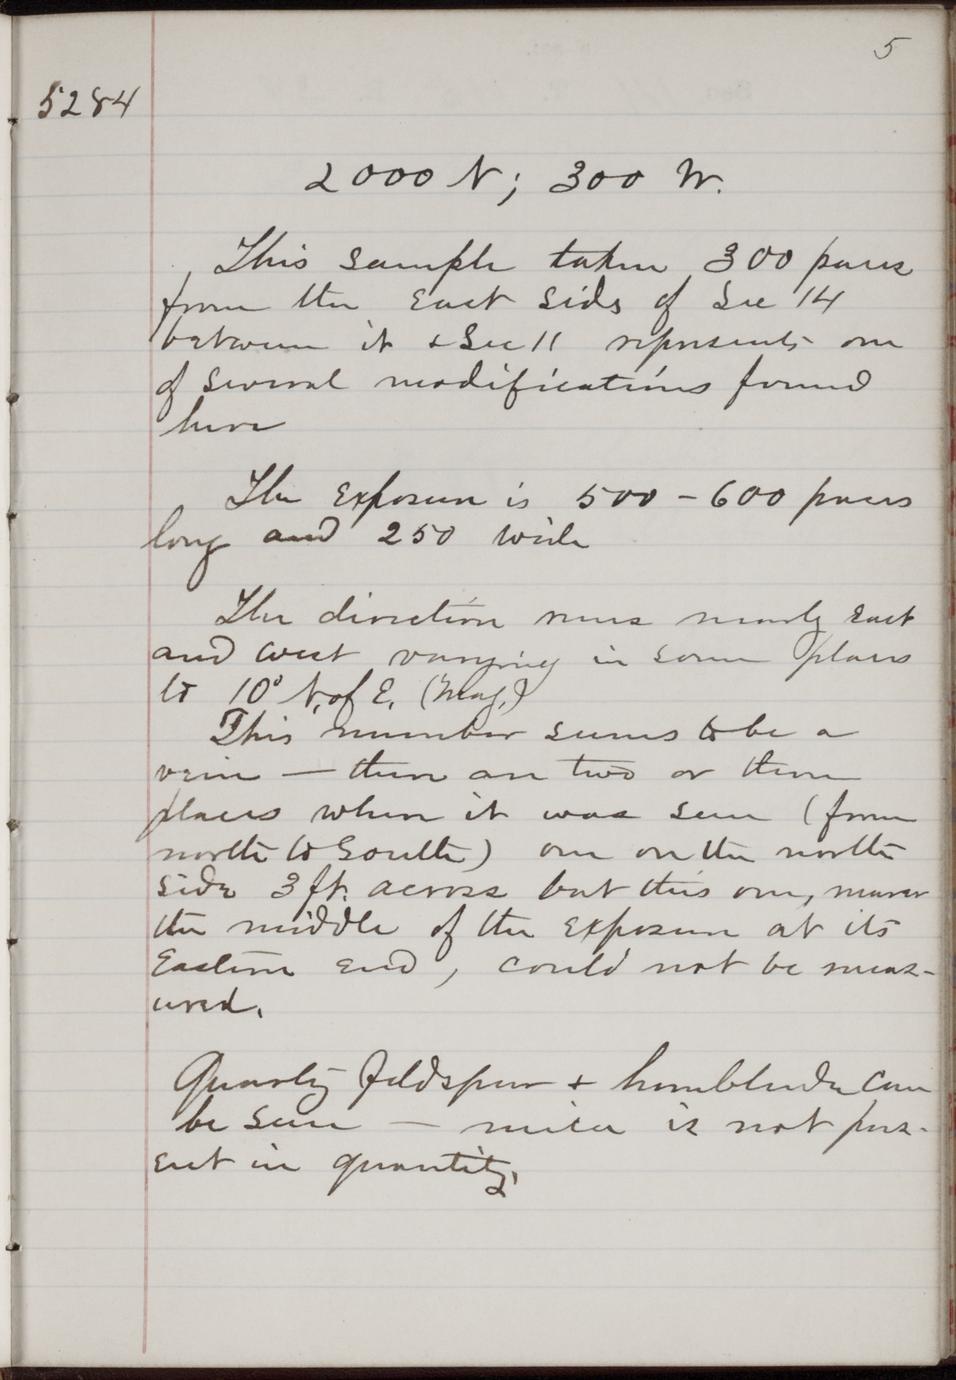 5
5284
2000 N; 300 W.
This sample taken 300 paces
from the East side of Sec 14
between it & Sec 11 represents one
of several modifications found
here
The Exposure is 500 - 600 paces
long and 250 wide
The direction runs nearly East
and west varying in some places
to 10° N. of E. (Mag.)
This number seems to be a
vein — there are two or three
places where it was seen (from
north to South) one on the north
side 3 ft. across but this one, nearer
the middle of the Exposure at its
Eastern End, could not be meas-
ured.
Quartz Feldspar & hornblende can
be seen — mica is not pres-
ent in quantity.